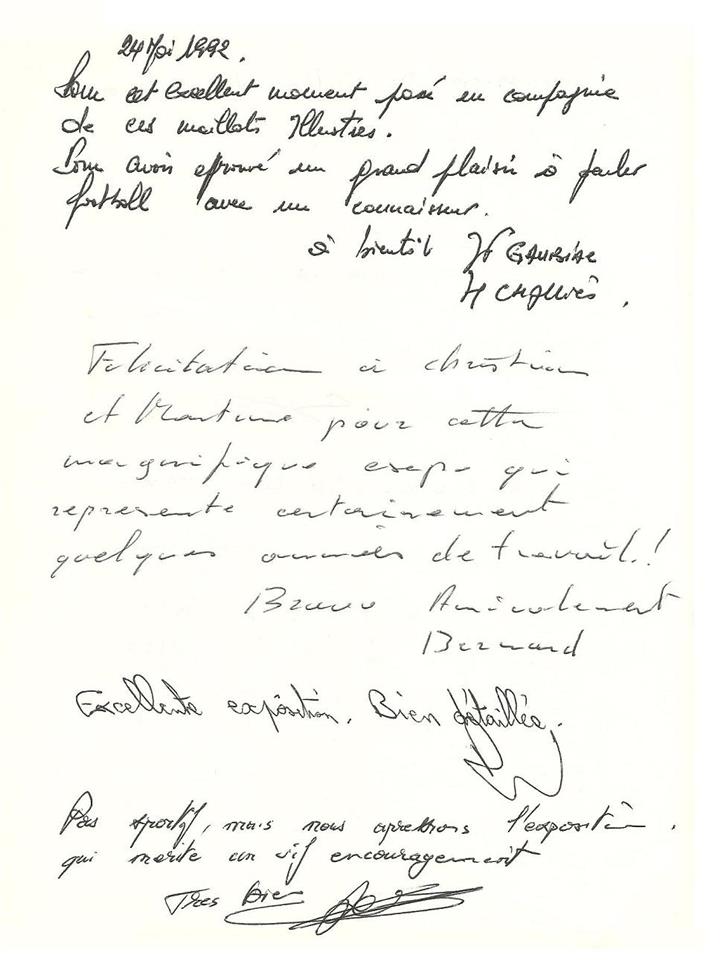 24 Mai 1992.
Pour cet excellent moment passé en compagnie
de ces maillots Illustres.
Pour avoir éprouvé un grand plaisir à parler
football avec un connaisseur.
à bientôt
Felicitation à christian
et Martine pour cette
magnifique
represente certainement
quelques années de travail.!
Bravo Amicalement
Bernard
Excellente expôsition. Bien détaillée.
Pas sportif, mais nous apprécions l'exposition.
qui merite un vif encouragement
Tres bien